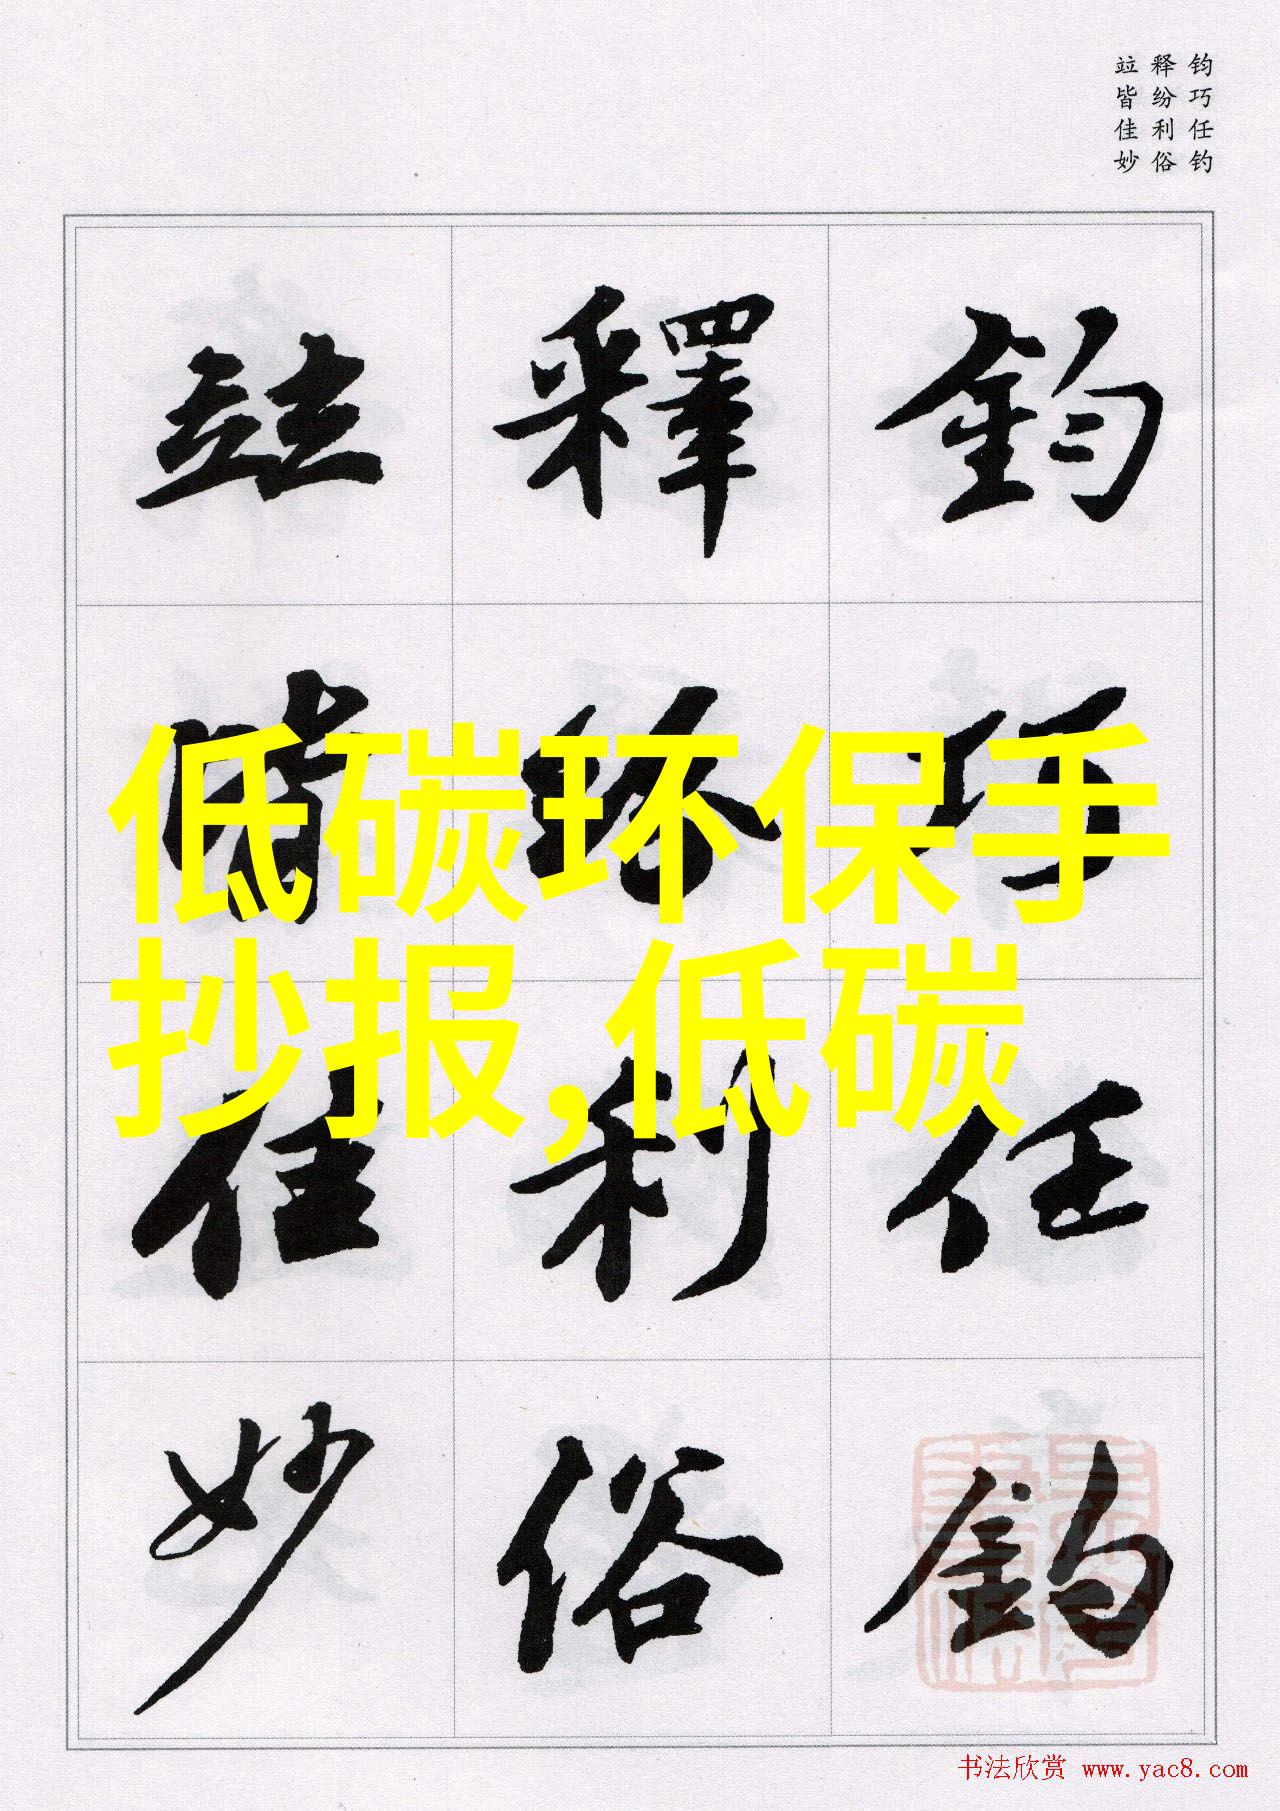 钧巧任钓
释纷利俗
竝皆佳妙
鈞巧任釣
釋紛利俗
竝皆佳妙
低碳环保手
抄报,低碳
书法欣赏 www.yac8.com